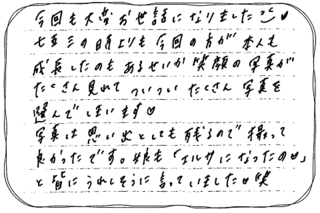 今回も大変お世話になりました♡
七五三の時よりも今回の方が本人も
成長したのもあるせいか笑顔の写真が
たくさん見れて ついつい たくさん写真を
選んでしまいます♡
写真は思い出としても残るので撮って
良かったです。娘も「エルサになったの♡」
と皆にうれしそうに言っていました♡笑